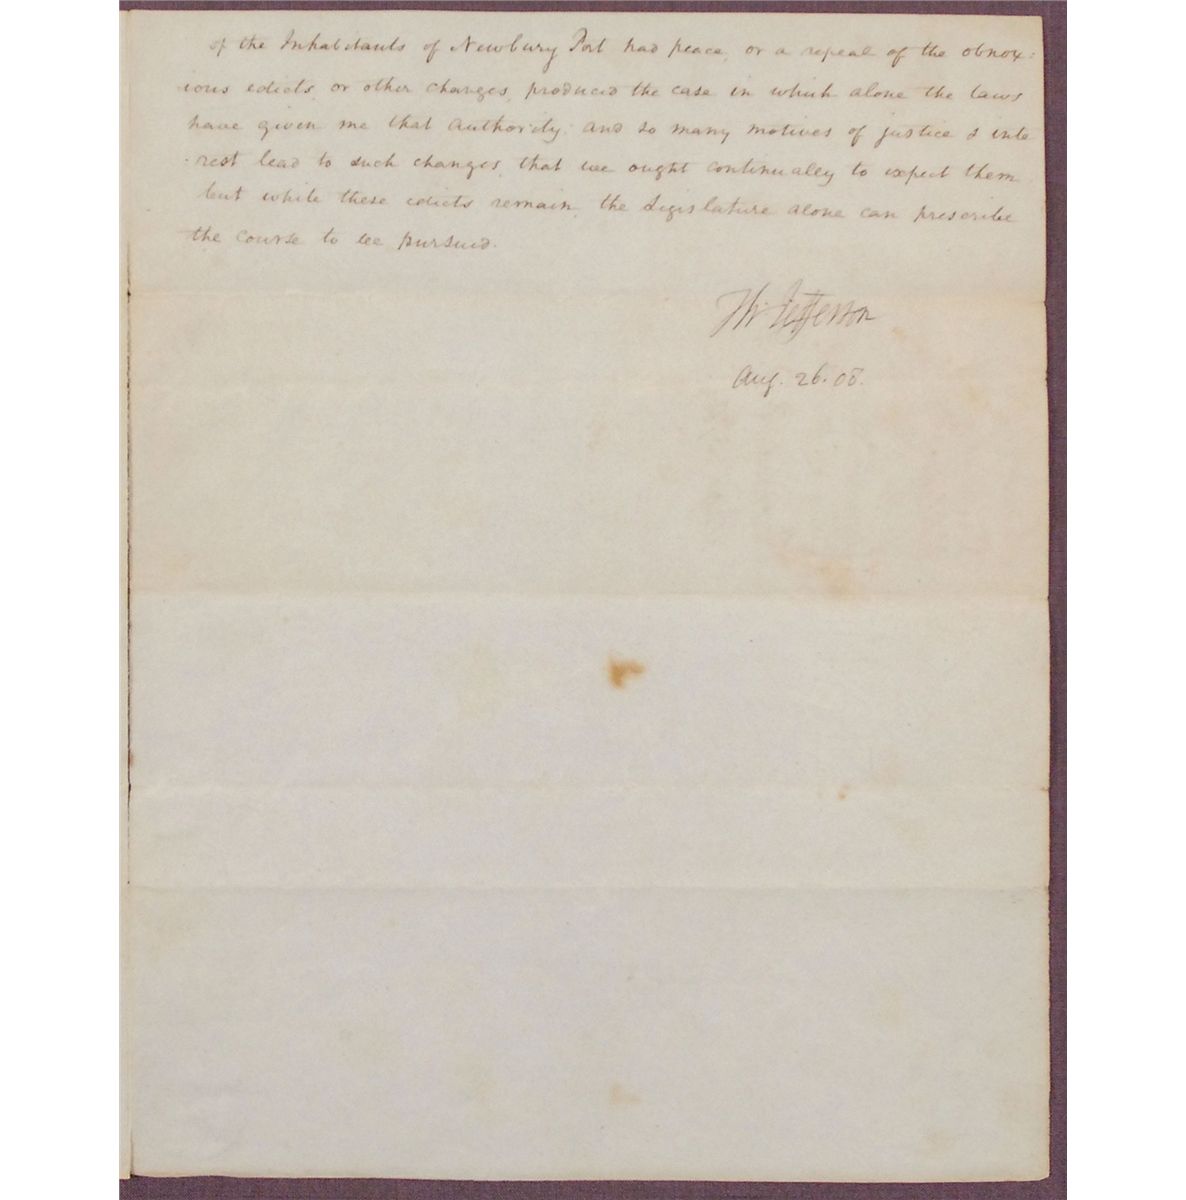 of the Inhabitants of Newbury Port had peace, or a repeal of the obnox=
ious edicts, or other changes, produced the case in which alone the laws
have given me that authority: and so many motives of justice & inte
-rest lead to such changes, that we ought continually to expect them.
but while these edicts remain, the Legislature alone can prescribe
the course to be pursued.
Th: Jefferson
Aug. 26. 08.